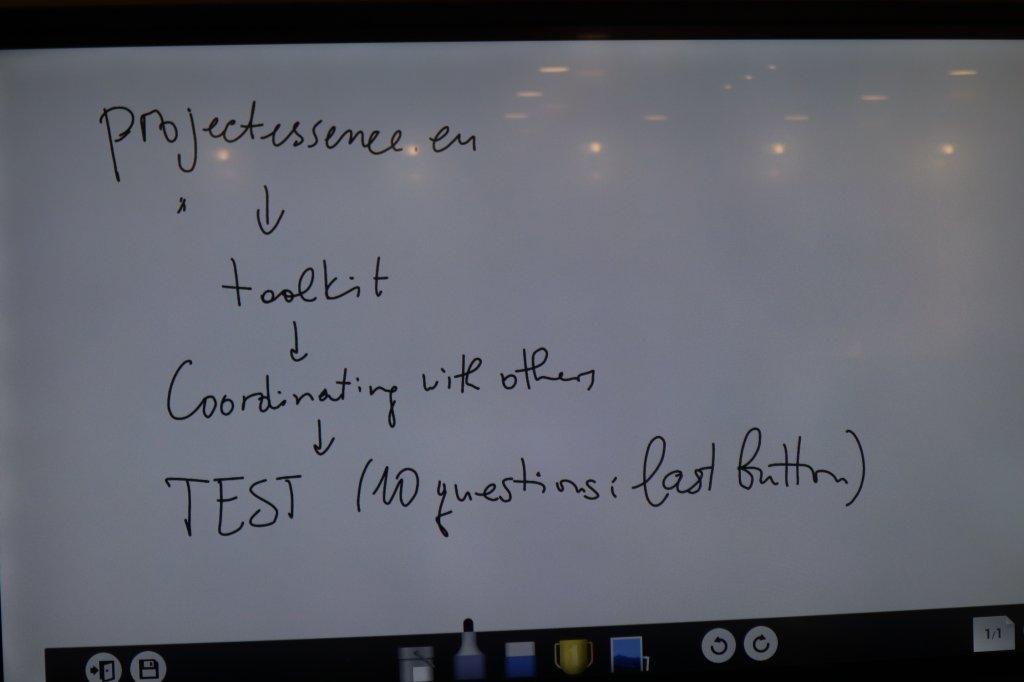 projectessence.eu
↓
toolkit
↓
Coordinating with others
↓
TEST (10 questions: last button)
1/1